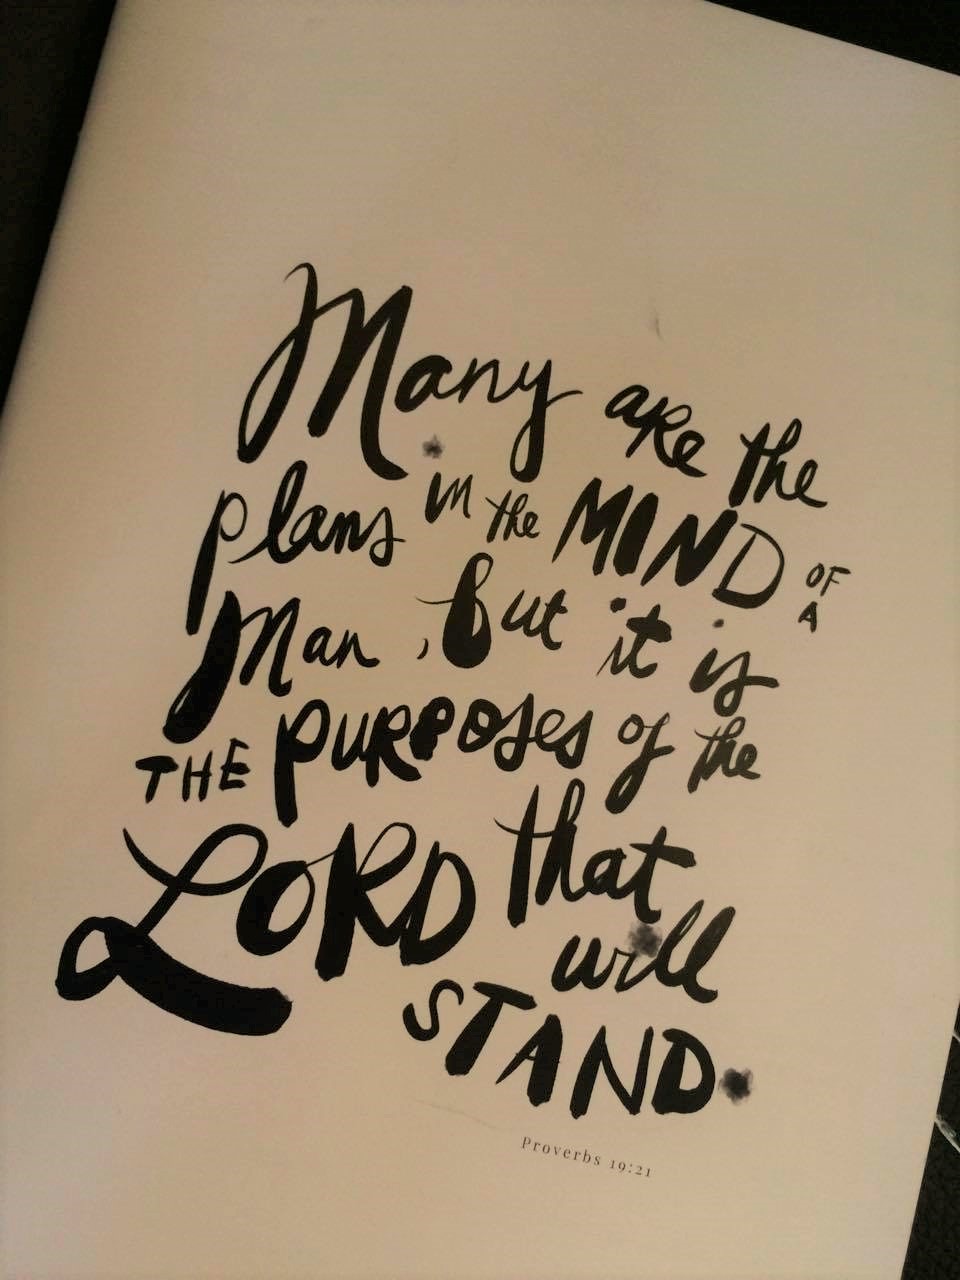 Many are the
plans in the MIND OF A
Man, but it is
THE PURPOses of the
LORD that
will
STAND.
Proverbs 19:21